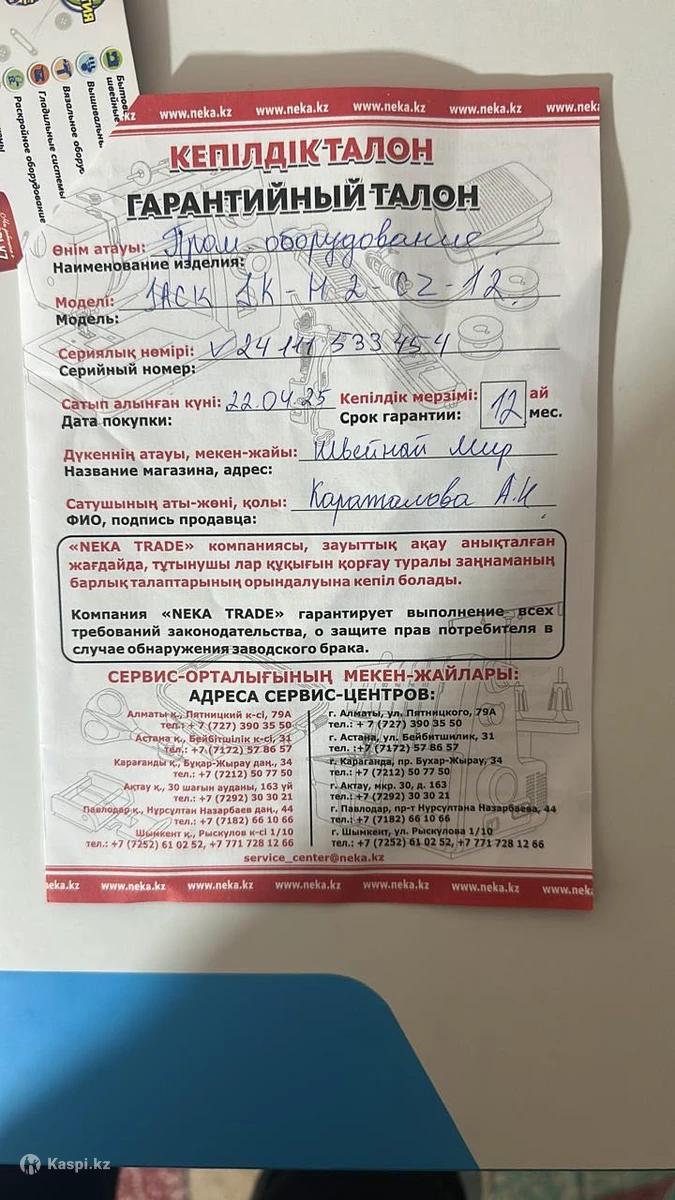 Бытовы
швейные
Вышивальны
Вязальное обору
Гладильные системы
Раскройное оборудование
.kz www.neka.kz www.neka.kz www.neka.kz www.neka.kz www.neka
КЕПІЛДІК ТАЛОН
ГАРАНТИЙНЫЙ ТАЛОН
Өнім атауы: Пром. оборудование
Наименование изделия:
Моделі: JACK JK-H2-CZ-12
Модель:
Сериялық нөмірі: V24111533454
Серийный номер:
Сатып алынған күні: 22.04.25 Кепілдік мерзімі: 12 ай
Дата покупки: Срок гарантии: мес.
Дүкеннің атауы, мекен-жайы: Швейный Мир
Название магазина, адрес:
Сатушының аты-жөні, қолы: А.К
ФИО, подпись продавца:
«NEKA TRADE» компаниясы, зауыттық ақау анықталған
жағдайда, тұтынушы лар құқығын қорғау туралы заңнаманың
барлық талаптарының орындалуына кепіл болады.
Компания «NEKA TRADE» гарантирует выполнение всех
требований законодательства, о защите прав потребителя в
случае обнаружения заводского брака.
СЕРВИС-ОРТАЛЫҒЫНЫҢ МЕКЕН-ЖАЙЛАРЫ:
АДРЕСА СЕРВИС-ЦЕНТРОВ:
Алматы қ., Пятницкий к-сі, 79А
тел.: + 7 (727) 390 35 50
Астана қ., Бейбітшілік к-сі, 31
тел.: +7 (7172) 57 86 57
Қарағанды қ., Бұқар-Жырау даң., 34
тел.: +7 (7212) 50 77 50
Ақтау қ., 30 шағын ауданы, 163 үй
тел.: +7 (7292) 30 30 21
Павлодар қ., Нұрсұлтан Назарбаев даң., 44
тел.: +7 (7182) 66 10 66
Шымкент қ., Рысқулов к-сі 1/10
тел.: +7 (7252) 61 02 52, +7 771 728 12 66
г. Алматы, ул. Пятницкого, 79А
тел.: + 7 (727) 390 35 50
г. Астана, ул. Бейбитшилик, 31
тел. :+7 (7172) 57 86 57
г. Караганда, пр. Бухар-Жырау, 34
тел.: +7 (7212) 50 77 50
г. Актау, мкр. 30, д. 163
тел.: +7 (7292) 30 30 21
г. Павлодар, пр-т Нурсултана Назарбаева, 44
тел.: +7 (7182) 66 10 66
г. Шымкент, ул. Рыскулова 1/10
тел.: +7 (7252) 61 02 52, +7 771 728 12 66
service_center@neka.kz
eka.kz www.neka.kz www.neka.kz www.neka.kz www.neka.kz www.neka.kz www.neka.kz
Kaspi.kz